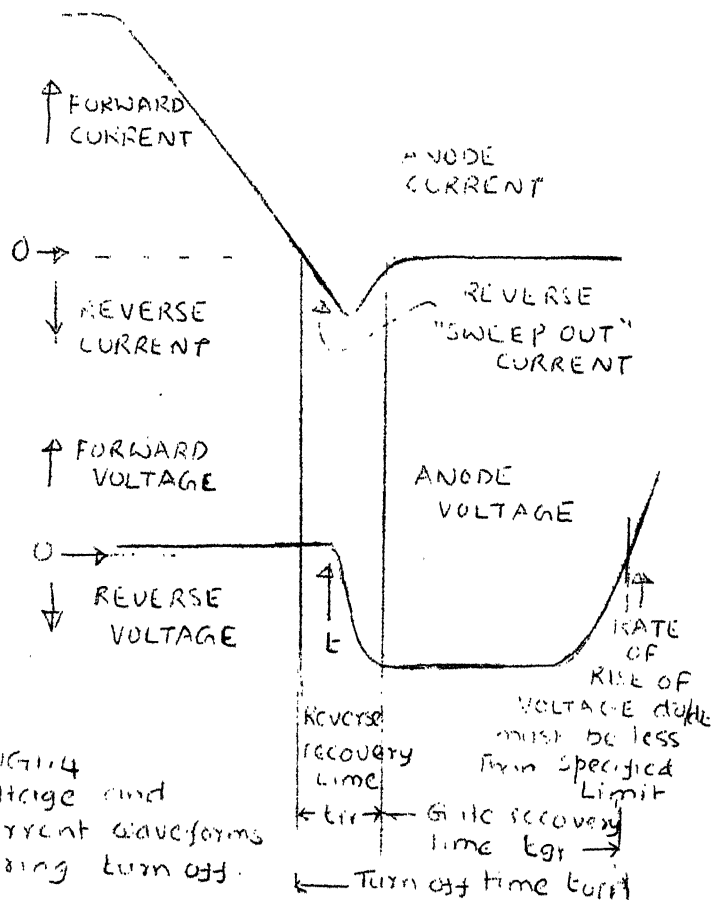 FORWARD
CURRENT
ANODE
CURRENT
0
REVERSE
CURRENT
REVERSE
"SWEEP OUT"
CURRENT
FORWARD
VOLTAGE
ANODE
VOLTAGE
0
REVERSE
VOLTAGE
t
RATE
OF
RISE OF
VOLTAGE dv/dt
must be less
than specified
Limit
Reverse
recovery
time
trr
Gate recovery
time tgr
Turn off time toff
1.4
and
waveforms
turn off.